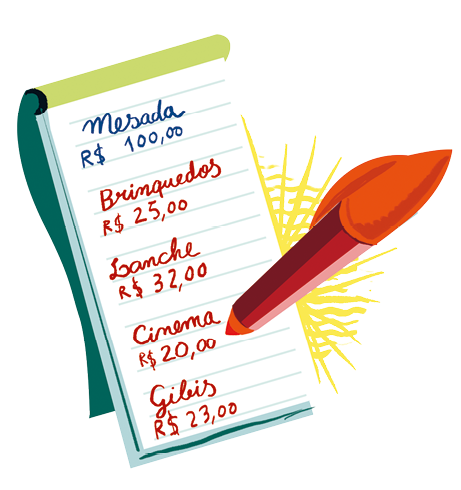 Mesada
R$ 100,00
Brinquedos
R$ 25,00
Lanche
R$ 32,00
Cinema
R$ 20,00
Gibis
R$ 23,00